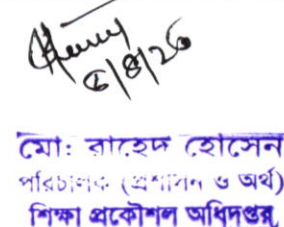 ৫/৪/২৬
মো: রাহেদ হোসেন
পরিচালক (প্রশাসন ও অর্থ)
শিক্ষা প্রকৌশল অধিদপ্তর